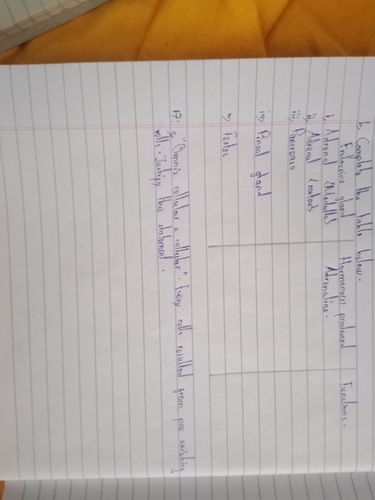 b, Complete the table below.
Endocrine gland Hormone(s) produced Functions.
i, Adrenal (Medulla) Adrenaline.
ii, Adrenal (cortex)
iii, Pancreas
iv, Pineal gland
v, Testes
17. a, "Omnis cellular e cellular". Every cell resulted from pre existing
cells. Justify this statement.